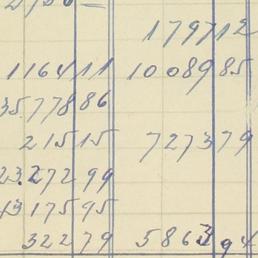 1797 12
1164 11 10089 85
35.778 86
215 15 7273 79
23.272 99
43175 95
322 79 5863 94